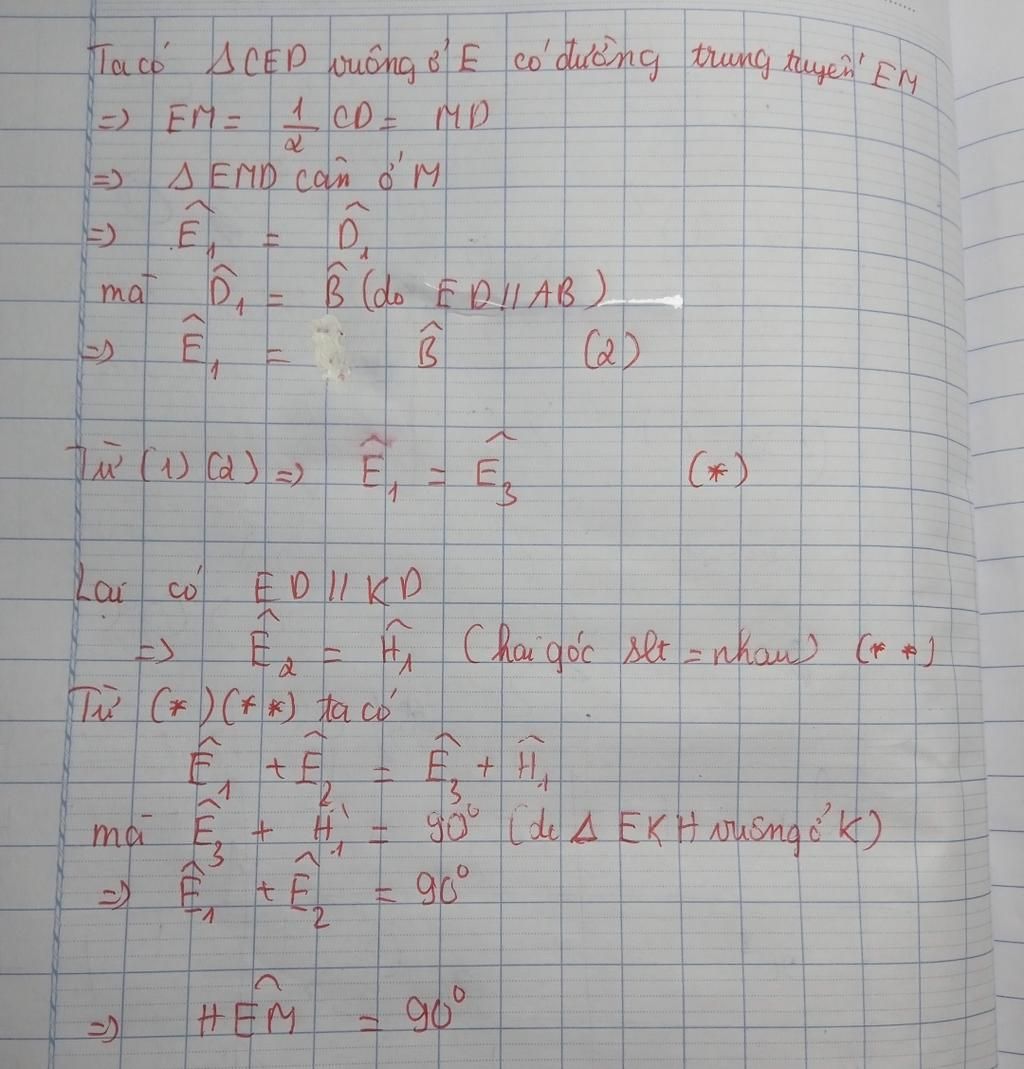 Ta có ΔCED vuông ở E có đường trung tuyến EM
=> EM = 1/2 CD = MD
=> Δ EMD cân ở M
=> Ê₁ = D̂₁
mà D̂₁ = B̂ (do ED // AB)
=> Ê₁ = B̂ (2)
Từ (1) (2) => Ê₁ = Ê₃ (*)
Lại có ED // KD
=> Ê₂ = Ĥ₁ (hai góc slt = nhau) (**)
Từ (*) (**) ta có
Ê₁ + Ê₂ = Ê₃ + Ĥ₁
mà Ê₃ + Ĥ₁ = 90° (do Δ EKH vuông ở K)
=> Ê₁ + Ê₂ = 90°
=> HÊM = 90°